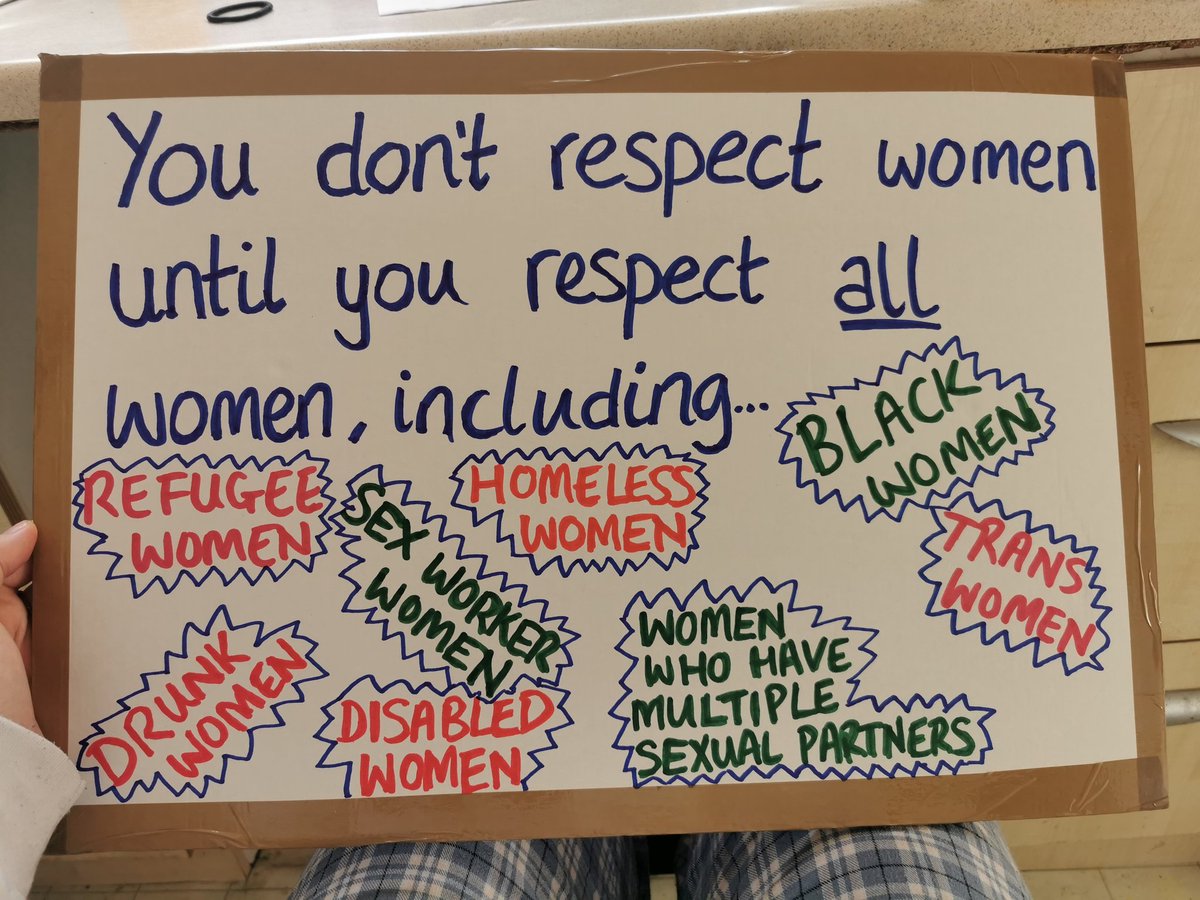 You don't respect women
until you respect all
women, including...
BLACK
WOMEN
REFUGEE
WOMEN
SEX WORKER
WOMEN
HOMELESS
WOMEN
TRANS
WOMEN
DRUNK
WOMEN
DISABLED
WOMEN
WOMEN
WHO HAVE
MULTIPLE
SEXUAL PARTNERS